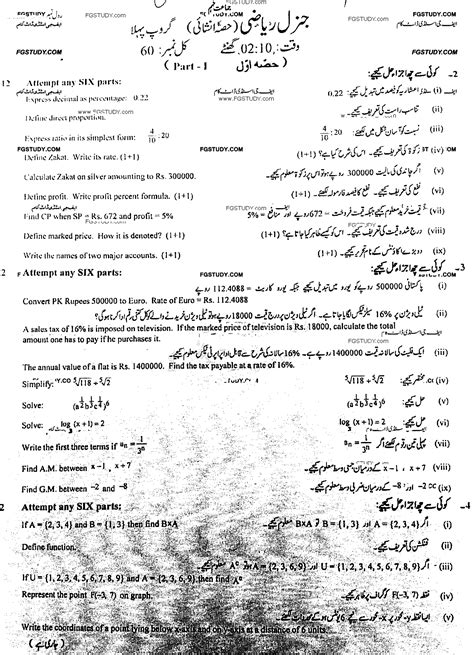 FGSTUDY.com
جماعت نہم
رول نمبر FGSTUDY.com
FGSTUDY.com
جنرل ریاضی (حصہ انشائی) گروپ پہلا
FGSTUDY.COM
وقت: 02:10 گھنٹے کل نمبر: 60
FGSTUDY.COM
( Part - I حصہ اوّل )
12 Attempt any SIX parts:
2۔ کوئی سے چھ اجزاء حل کیجیے:
Express decimal as percentage: 0.22
(i) اعشاریہ کو فیصد میں تبدیل کیجیے: 0.22
www.FGSTUDY.COM
Define direct proportion.
(ii) تناسب راست کی تعریف کیجیے۔
Express ratio in its simplest form: 4/10 : 20
(iii) نسبت کو آسان شکل میں لکھئے: 4/10 : 20
FGSTUDY.COM
Define Zakat. Write its rate. (1+1)
(iv) زکوٰۃ کی تعریف کیجیے۔ اس کی شرح کیا ہے؟ (1+1)
Calculate Zakat on silver amounting to Rs. 300000.
(v) اگر چاندی کی مالیت 300000 روپے ہو تو اس پر زکوٰۃ معلوم کیجیے۔
Define profit. Write profit percent formula. (1+1)
(vi) نفع کی تعریف کیجیے۔ نفع کا فیصد فارمولا لکھئے۔ (1+1)
FGSTUDY.COM
Find CP when SP = Rs. 672 and profit = 5%
(vii) قیمت خرید معلوم کیجیے جبکہ قیمت فروخت = 672 روپے اور منافع = 5%
Define marked price. How it is denoted? (1+1)
(viii) درج شدہ قیمت کی تعریف کیجیے۔ اس کو کیسے ظاہر کیا جاتا ہے؟ (1+1)
Write the names of two major accounts. (1+1)
(ix) دو بڑے اکاؤنٹس کے نام تحریر کیجیے۔ (1+1)
2 Attempt any SIX parts:
FGSTUDY.COM
3۔ کوئی سے چھ اجزاء حل کیجیے:
(i) پاکستانی 500000 روپے کو یورو میں تبدیل کیجیے جبکہ یورو کا ریٹ = 112.4088 روپے
Convert PK Rupees 500000 to Euro. Rate of Euro = Rs. 112.4088
(ii) ٹیلی ویژن پر 16% سیلز ٹیکس لگایا جاتا ہے۔ اگر ٹیلی ویژن پر درج قیمت 18000 روپے ہو تو ٹیلی ویژن خریدنے والے کو کل کتنی رقم ادا کرنا ہوگی؟
A sales tax of 16% is imposed on television. If the marked price of television is Rs. 18000, calculate the total
amount one has to pay if he purchases it.
(iii) ایک فلیٹ کی سالانہ قیمت 1400000 روپے ہے۔ 16% سالانہ کی شرح سے قابل ادا پراپرٹی ٹیکس معلوم کیجیے۔
The annual value of a flat is Rs. 1400000. Find the tax payable at a rate of 16%.
Simplify: ⁵√118 ÷ ⁵√2
(iv) مختصر کیجیے: ⁵√118 ÷ ⁵√2
Solve: (a^½ b^⅓ c^¼)^6
(v) حل کیجیے: (a^½ b^⅓ c^¼)^6
Solve: log (x + 1) = 2
(vi) حل کیجیے: log (x + 1) = 2
Write the first three terms if aₙ = 1/3ⁿ
(vii) پہلی تین رقوم لکھئے اگر aₙ = 1/3ⁿ
Find A.M. between x − 1 , x + 7
(viii) x − 1 ، x + 7 کے درمیان حسابی وسط معلوم کیجیے۔
Find G.M. between −2 and −8
(ix) −2 اور −8 کے درمیان ہندسی وسط معلوم کیجیے۔
2 Attempt any SIX parts:
4۔ کوئی سے چھ اجزاء حل کیجیے:
If A = {2, 3, 4} and B = {1, 3} then find B×A
(i) اگر A = {2, 3, 4} اور B = {1, 3} تو B×A معلوم کیجیے۔
Define function.
(ii) فنکشن کی تعریف کیجیے۔
If U = {1, 2, 3, 4, 5, 6, 7, 8, 9} and A = {2, 3, 6, 9}, then find Aᶜ
(iii) اگر U = {1, 2, 3, 4, 5, 6, 7, 8, 9} اور A = {2, 3, 6, 9} تو Aᶜ معلوم کیجیے۔
Represent the point F(−3, 7) on graph.
(iv) نقطہ F(−3, 7) کو گراف پر ظاہر کیجیے۔
Write the coordinates of a point lying below x-axis and on y-axis at a distance of 6 units.
(جاری ہے)